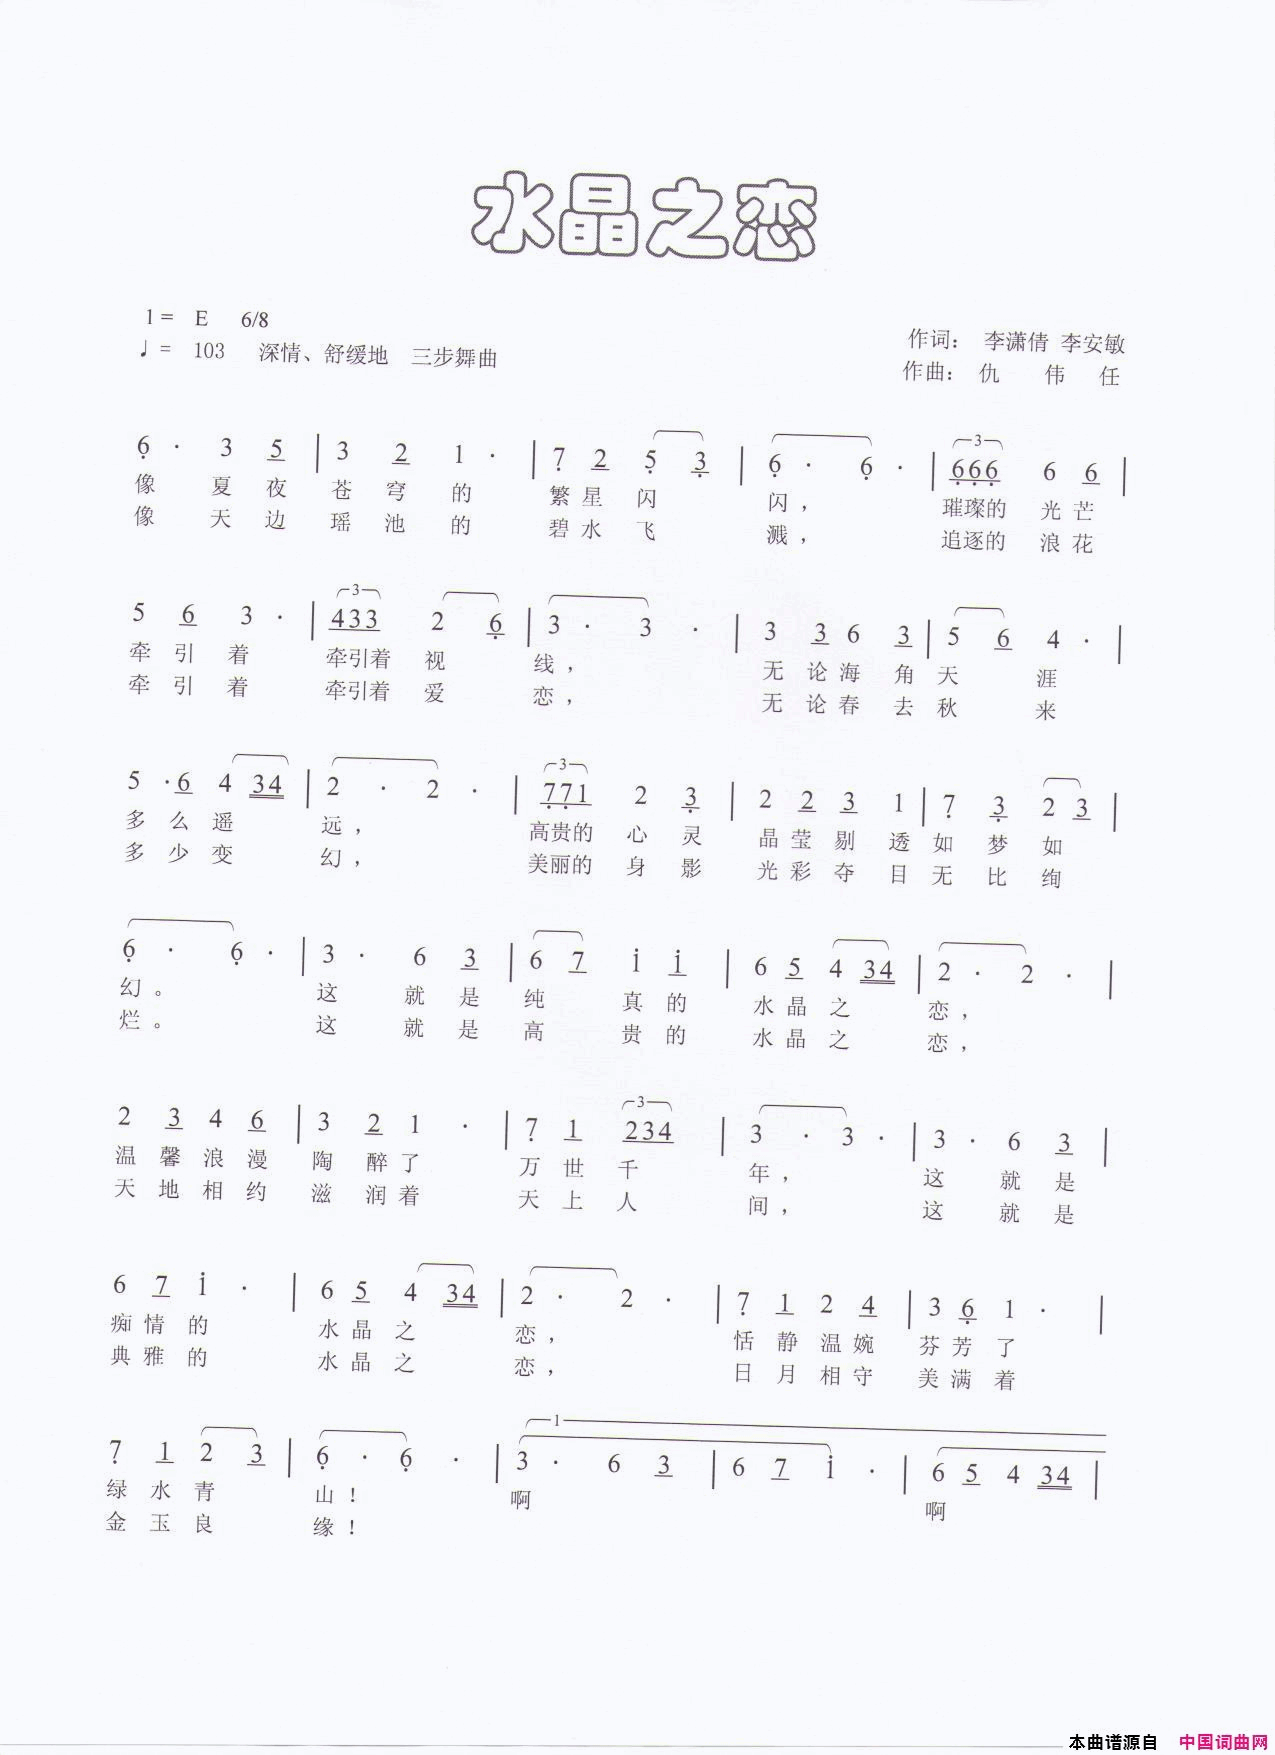 水晶之恋
1= E 6/8
♩= 103 深情、舒缓地 三步舞曲
作词： 李潇倩 李安敏
作曲： 仇 伟 任
6̣ · 3 5 | 3 2 1 · | 7̣ 2 5̣ 3̣ | 6̣ · 6̣ · | 3 6̣6̣6̣ 6 6 |
像 夏 夜 苍 穹 的 繁 星 闪 闪， 璀璨的 光 芒
像 天 边 瑶 池 的 碧 水 飞 溅， 追逐的 浪 花
5 6 3 · | 3 433 2 6̣ | 3 · 3 · | 3 3 6 3 | 5 6 4 · |
牵 引 着 牵引着 视 线， 无 论 海 角 天 涯
牵 引 着 牵引着 爱 恋， 无 论 春 去 秋 来
5 · 6 4 34 | 2 · 2 · | 3 7̣7̣1 2 3̣ | 2 2 3 1 | 7 3̣ 2 3 |
多 么 遥 远， 高贵的 心 灵 晶 莹 剔 透 如 梦 如
多 少 变 幻， 美丽的 身 影 光 彩 夺 目 无 比 绚
6̣ · 6̣ · | 3 · 6 3 | 6 7 i i | 6 5 4 34 | 2 · 2 · |
幻。 这 就 是 纯 真 的 水 晶 之 恋，
烂。 这 就 是 高 贵 的 水 晶 之 恋，
2 3 4 6 | 3 2 1 · | 7̣ 1 3 234 | 3 · 3 · | 3 · 6 3 |
温 馨 浪 漫 陶 醉 了 万 世 千 年， 这 就 是
天 地 相 约 滋 润 着 天 上 人 间， 这 就 是
6 7 i · | 6 5 4 34 | 2 · 2 · | 7̣ 1 2 4 | 3 6̣ 1 · |
痴 情 的 水 晶 之 恋， 恬 静 温 婉 芬 芳 了
典 雅 的 水 晶 之 恋， 日 月 相 守 美 满 着
1
7̣ 1 2 3 | 6̣ · 6̣ · | 3 · 6 3 | 6 7 i · | 6 5 4 34 |
绿 水 青 山！ 啊 啊
金 玉 良 缘！
本曲谱源自 中国词曲网